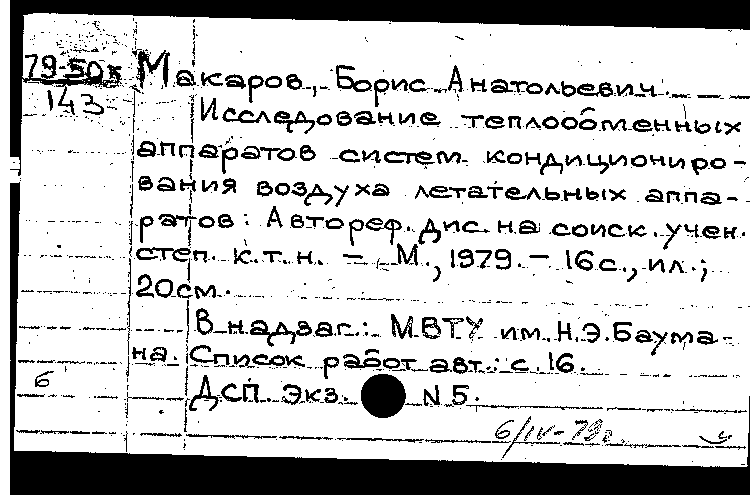 79-50к Макаров, Борис Анатольевич.
143
Исследование теплообменных
аппаратов систем кондициониро-
вания воздуха летательных аппа-
ратов: Автореф. дис. на соиск. учен.
степ. к.т.н. – М., 1979. – 16 с., ил.;
20 см.
В надзаг.: МВТУ им. Н.Э. Баума-
на. Список работ авт.: с. 16.
б ДСП. Экз. N 5.
6/IV-79г.